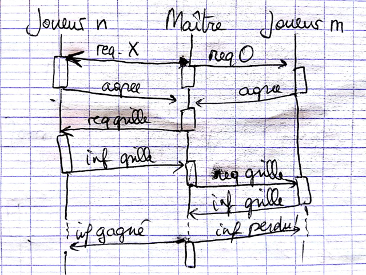 Joueur n Maître Joueur m
req X req O
agree agree
req grille
inf grille
req grille
inf grille
inf gagné inf perdu